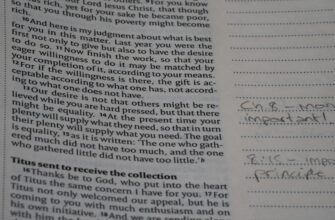 our Lord Jesus Christ, that though
was rich, yet for your sake he became poor,
so that you through his poverty might become
rich.
10 And here is my judgment about what is best
for you in this matter. Last year you were the
first not only to give but also to have the desire
to do so. 11 Now finish the work, so that your
eager willingness to do it may be matched by
your completion of it, according to your means.
12 For if the willingness is there, the gift is ac-
ceptable according to what one has, not accord-
ing to what one does not have.
13 Our desire is not that others might be re-
lieved while you are hard pressed, but that there
might be equality. 14 At the present time your
plenty will supply what they need, so that in turn
their plenty will supply what you need. The goal
is equality, 15 as it is written: "The one who gath-
ered much did not have too much, and the one
who gathered little did not have too little."
Titus sent to receive the collection
16 Thanks be to God, who put into the heart
of Titus the same concern I have for you. 17 For
Titus not only welcomed our appeal, but he is
coming to you with much enthusiasm and on
his own initiative. 18 And we are sending along
with him the
Ch. 8 - mo
important!
8:15 - impo
principle